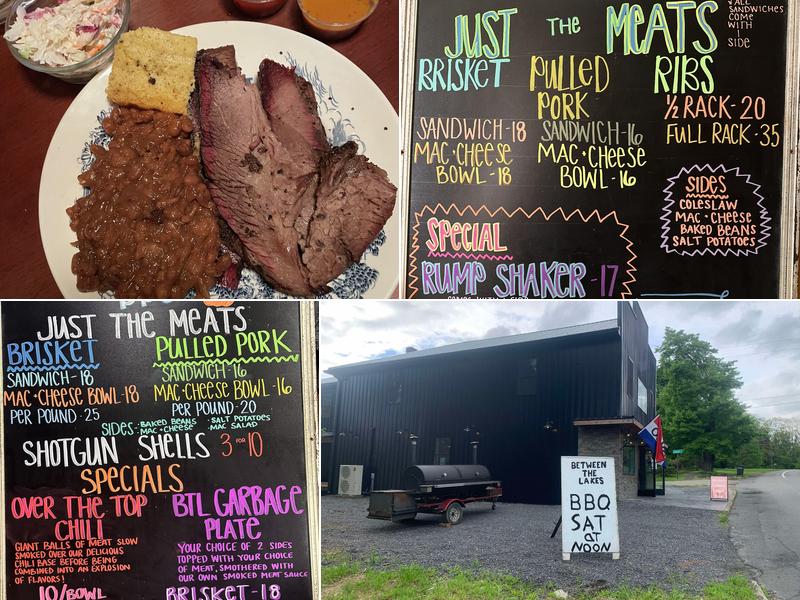 JUST THE MEATS
ALL
SANDWICHES
COME
WITH
1
SIDE
BRISKET
SANDWICH-18
MAC•CHEESE
BOWL-18
PULLED
PORK
SANDWICH-16
MAC•CHEESE
BOWL-16
RIBS
1/2 RACK-20
FULL RACK-35
SIDES
COLESLAW
MAC•CHEESE
BAKED BEANS
SALT POTATOES
SPECIAL
RUMP SHAKER-17
JUST THE MEATS
BRISKET
SANDWICH-18
MAC•CHEESE BOWL-18
PER POUND-25
PULLED PORK
SANDWICH-16
MAC•CHEESE BOWL-16
PER POUND-20
SIDES: BAKED BEANS • SALT POTATOES
MAC•CHEESE • MAC SALAD
SHOTGUN SHELLS 3 FOR 10
SPECIALS
OVER THE TOP
CHILI
GIANT BALLS OF MEAT SLOW
SMOKED OVER OUR DELICIOUS
CHILI BASE BEFORE BEING
COMBINED INTO AN EXPLOSION
OF FLAVORS!
10/BOWL
BTL GARBAGE
PLATE
YOUR CHOICE OF 2 SIDES
TOPPED WITH YOUR CHOICE
OF MEAT, SMOTHERED WITH
OUR OWN SMOKED MEAT SAUCE
BRISKET-18
BETWEEN
THE
LAKES
BBQ
SAT
AT
NOON